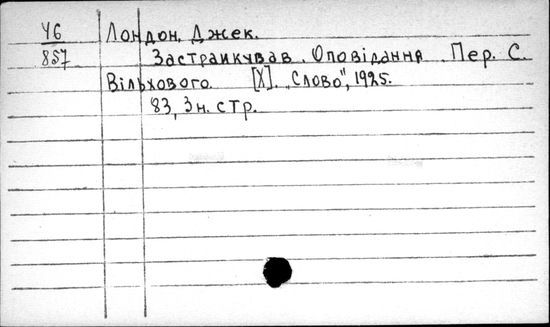 У6 Лондон, Джек.
857 Застрайкував. Оповідання. Пер. С.
Вільхового. [Х]. „Слово", 1925.
83, 3 н. стр.